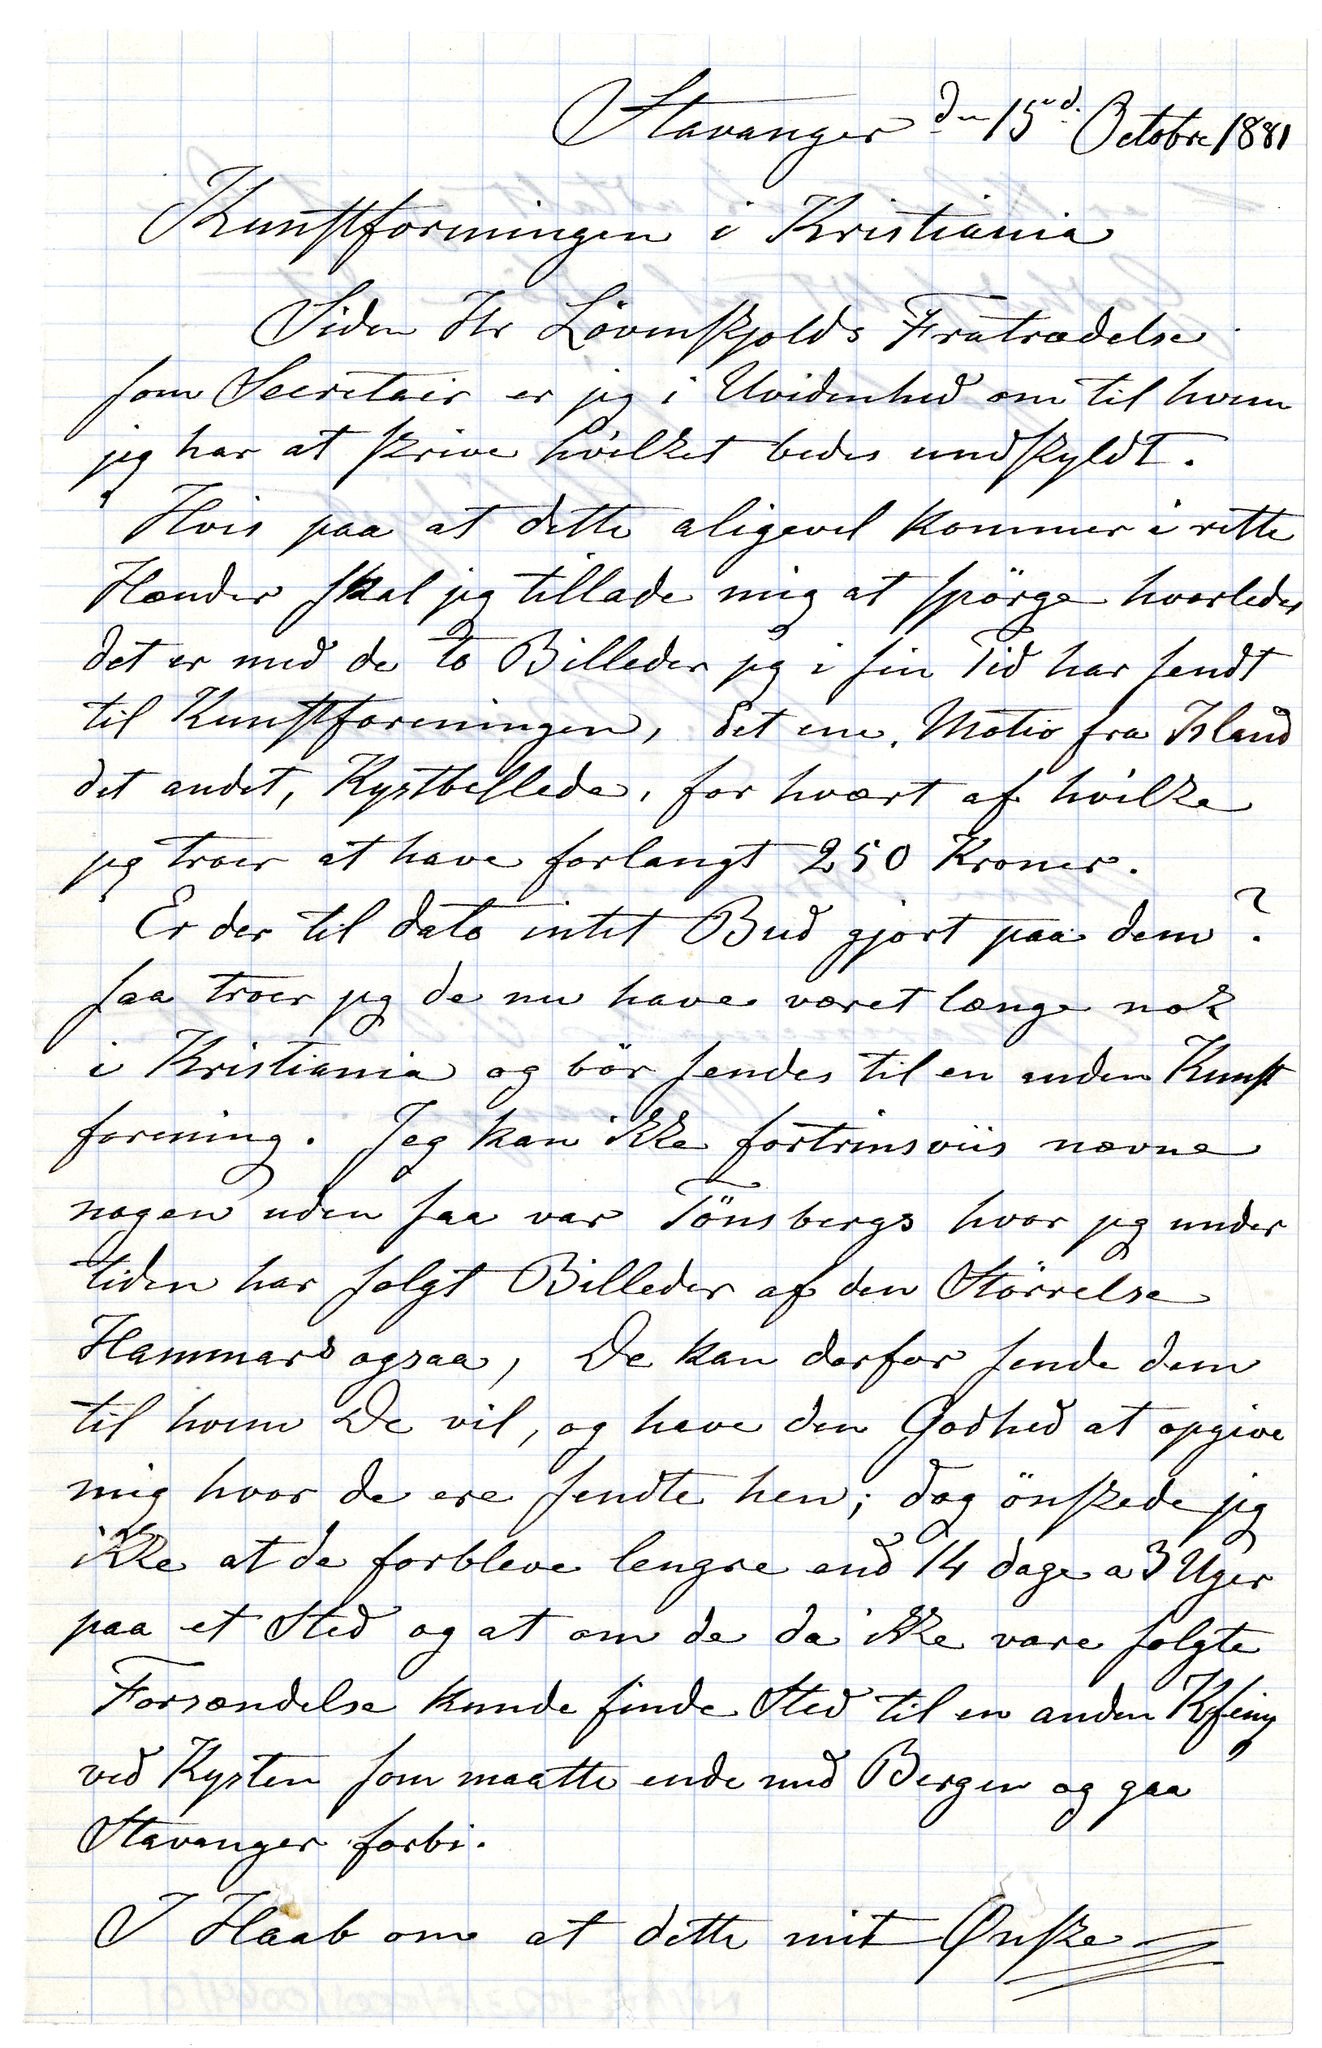 Stavanger dn 15nd. Octobre 1881
Kunstforningen i Kristiania
Siden Hr Lövenskjolds Fratrædelse
som Secretair er jeg i Uvidenhed om til hvem
jeg har at skrive hvilket bedes undskyldt.
Hvis paa at dette aligevel kommer i rette
Hænder skal jeg tillade mig at spörge hvorledes
det er med de to Billeder jeg i sin Tid har sendt
til Kunstforeningen, det ene, Motiv fra Island
det andet, Kystbillede, for hvært af hvilke
jeg troer at have forlangt 250 Kroner.
Er der til dato intet Bud gjort paa dem?
saa troer jeg de nu have været længe nok
i Kristiania og bör sendes til en anden Kunst
forening. Jeg kan ikke fortrinsviis nævne
nogen uden saa var Tönsbergs hvor jeg under
tiden har solgt Billeder af den Störrelse
Hammars ogsaa, De kan derfor sende dem
til hvem De vil, og have den Godhed at opgive
mig hvor de ere sendte hen; dog önskede jeg
ikke at de forbleve lengre end 14 dage a 3 Uger
paa et Sted og at om de da ikke vare solgte
Forsændelse kunde finde Sted til en anden Kfening
ved Kysten som maatte ende med Bergen og gaa
Stavanger forbi.
I Haab om at dette mit Ønske